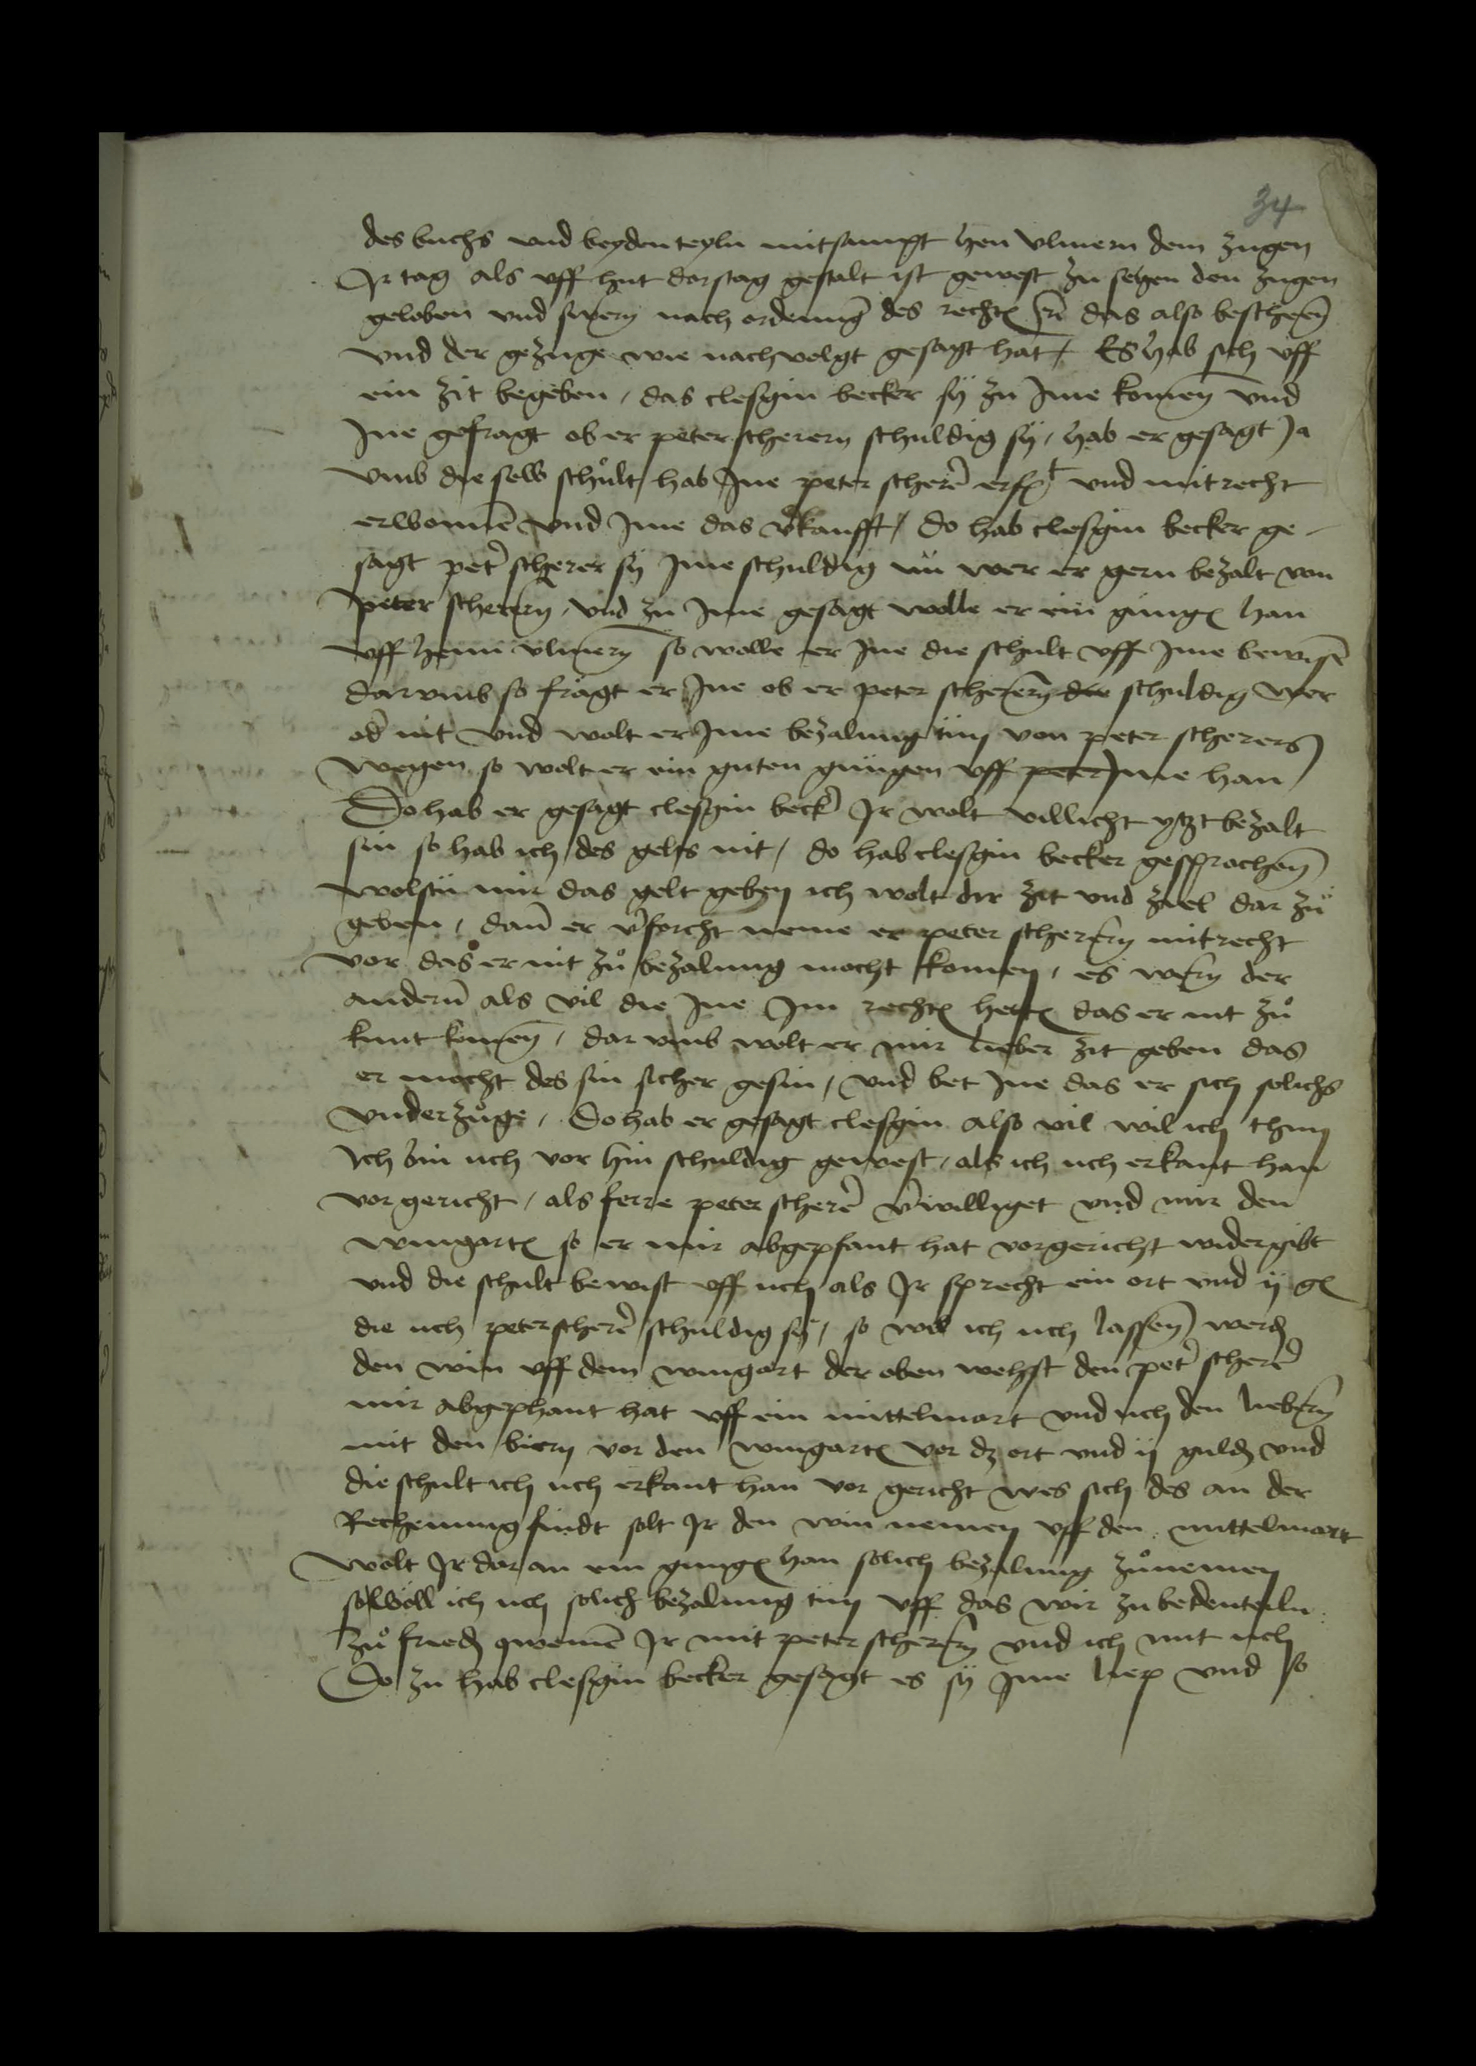 34
des buchs vnd beyden teyln mitsampt hen vlmern dem zugen
Jr tag als vff hut dorstag gestalt ist gewest zu sehen den zugen
geloben vnd swern nach ordenūg des rechtē ist das also bescheeñ
vnd der gezuge wie nachvolgt gesagt hat / Es hab sich vff
ein zit begeben / das clesgin becker sÿ zu Jme komeñ vnd
Jne gefragt ob er peter scherern schuldig sÿ / hab er gesagt Ja
vmb die selb schult hab Jne peter scherē erfolgt vnd mit recht
erwonnē vnd Jme das v'kaufft / do hab clesgin becker ge-
sagt pet' scherer sÿ Jme schuldig nū wer er gern bezalt von
peter scherern / vnd zu Jme gesagt wolle er ein gnugē han
vff henn vlmern so wolle er Jne die schult vff Jme bewisē
dar vmb so fragt er Jne ob er peter scherern schuldig wer
od' nit vnd wolt er Jme bezalung tun von peter scherers
wegen so wolt er ein guten gnugen vff peter Jme han
Do hab er gesagt clesgin beck' Jr wolt villicht ytzt bezalt
sin so hab ich des gelts nit / do hab clesgin becker gesprocheñ
wolstu mir das gelt geben ich wolt dir zit vnd ziel dar zů
geben / dañ er v'forcht neme er peter scherern mit recht
vor das er nit zů bezalung mocht komen / es wern der
andern als vil die Jne Jm rechtē hettē das er nit zů
kunt komeñ / dar vmb wolt er mir lieber zit geben das
er mocht des sin sicher gesin / vnd bet Jne das er sich solichs
vnderzůge / Do hab er gesagt clesgin also vil wil ich thun
Jch bin uch vor hin schuldig gewest / als ich uch erkant han
vor gericht / als ferre peter scherē v'williget vnd mir den
wingartē so er mir abgepfant hat vor gericht wider gibt
vnd die schult bewist vff uch als Jr sprecht ein ort vnd ij gl
die uch peter scherē schuldig sÿ / so will ich uch lasseñ werdē
den win vff dem wingart der oben wehst den pet' scherē
mir abgephant hat vff ein mittelmart vnd uch den liebern
mit den biern vor den wingartē vor dz ort vnd ij guldē vnd
die schult ich uch erkant han vor gericht wes sich des an der
Rechenung findt solt Jr den win nemen vff den mittelmart
wolt Jr dar an ein gnugē han solich bezalung zůnemen
so woll ich uch solich bezalung tun vff das wir zu beydenteiln
zů friedē qwemē Jr mit peter scherern vnd ich mit uch
Do zu hab clesgin becker gesagt es sÿ Jme liep vnd so